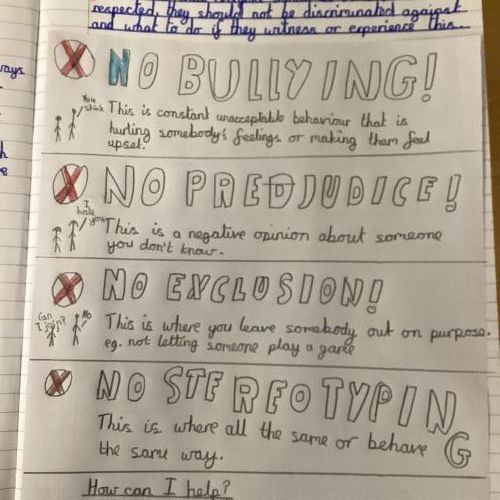 respected, they should not be discriminated against
and what to do if they witness or experience this.
ways
NO BULLYING!
You
stink
This is constant unacceptable behaviour that is
hurting somebody's feelings or making them feel
upset.
NO PREDJUDICE!
I
hate
you
This is a negative opinion about someone
you don't know.
NO EXCLUSION!
Can
I join?
No
This is where you leave somebody out on purpose.
eg. not letting someone play a game
NO STEREOTYPING
This is where all the same or behave
the same way.
How can I help?